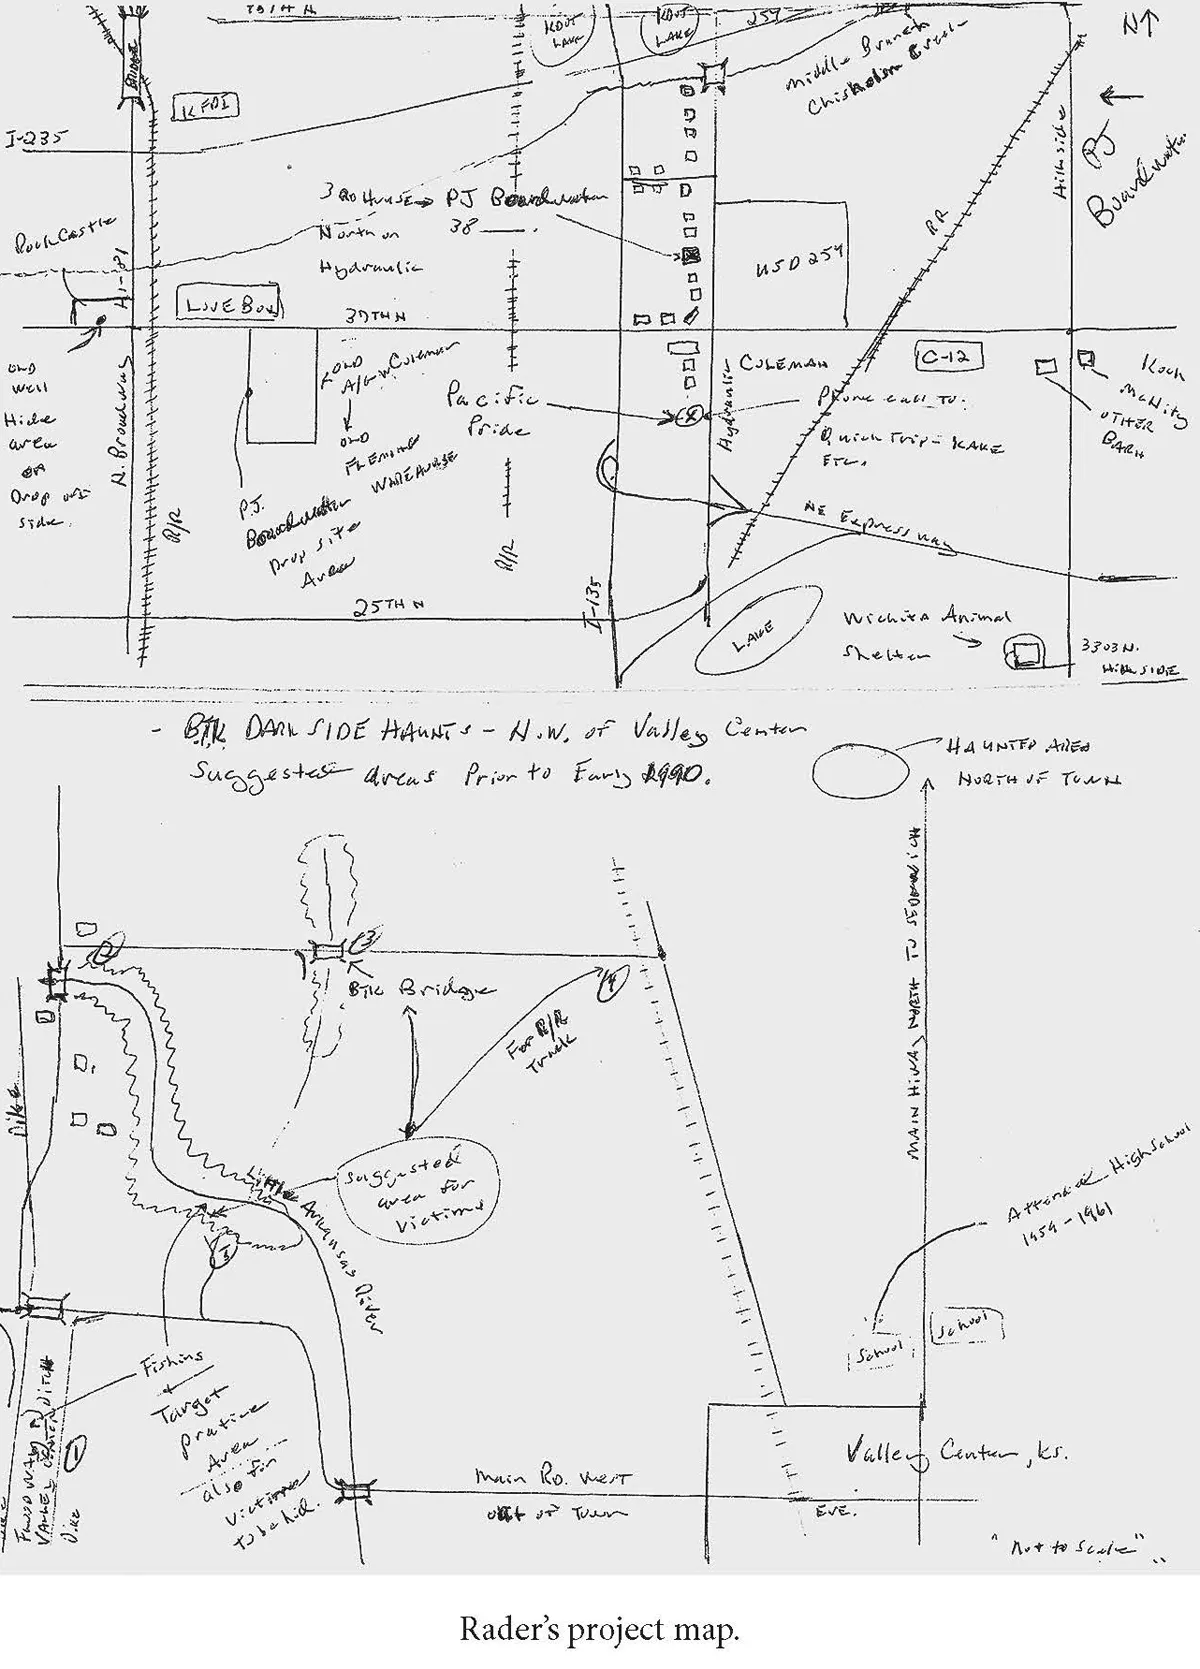 BRIDGE
KFDI
I-235
KDOT
LAKE
KDOT
LAKE
254
Middle Branch
Chisholm Creek
N
Hillside
PJ
Boardwater
RockCastle
HI-81
3RD HOUSE → PJ Boardwater
North on 38
Hydraulic
R.R
USD 259
LOVE BOX
37TH N
OLD
Well
Hide
area
OR
Drop off
side.
N. Broadway
OLD
A/G W Coleman
OLD
FLEMING
WAREHOUSE
Pacific
Pride
Hydraulic
COLEMAN
C-12
Phone call to:
Quick Trip - KAKE
ETC.
OTHER
BARN
Koch
P.J.
Boardwater
Drop site
Area
R/R
R/R
NE Expressway
25TH N
I-135
LAKE
Wichita Animal
Shelter
3303 N.
Hill SIDE
- BTK DARK SIDE HAUNTS - N.W. of Valley Center
Suggested areas Prior to Early 1990.
HAUNTED AREA
NORTH OF TOWN
2
3
BTK Bridge
4
For R/R
Track
MAIN HIWAY NORTH TO SEDGWICH
Dike
Suggested
area for
victims
Little Arkansas River
Attended High School
1959-1961
School
School
Fishing
+
Target
practice
Area
also for
victims
to be hid.
1
Dike
Main Rd. West
out of Town
Valley Center, KS.
"Not to Scale"
Rader's project map.